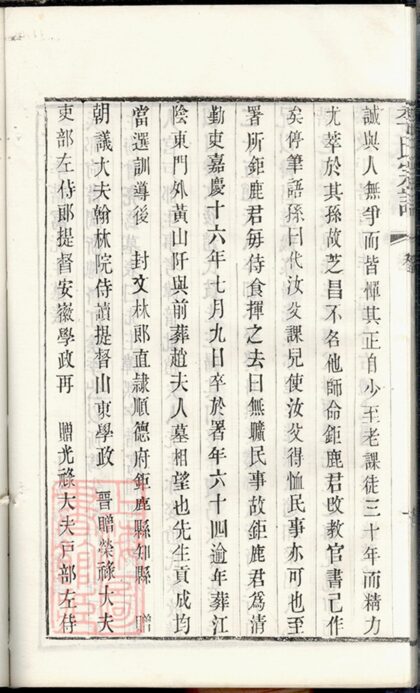 誠與人無爭而皆憚其正自少至老課徒三十年而精力
尤萃於其孫故芝昌不名他師命鉅鹿君改教官書已作
矣停筆語孫曰代汝父課兒使汝父得恤民事亦可也至
署所鉅鹿君每侍食揮之去曰無曠民事故鉅鹿君為清
勤吏嘉慶十六年七月九日卒於署年六十四逾年葬江
陰東門外黃山阡與前葬趙夫人墓相望也先生貢成均
當選訓導後 封文林郎直隸順德府鉅鹿縣知縣 贈
朝議大夫翰林院侍讀提督山東學政 晉贈榮祿大夫
吏部左侍郎提督安徽學政再 贈光祿大夫戶部左侍